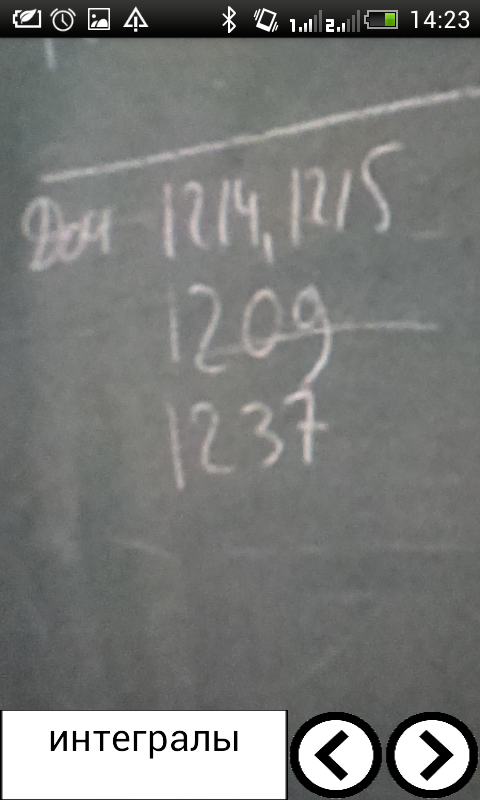 14:23
Дом 1214, 1215
1209
1237
интегралы